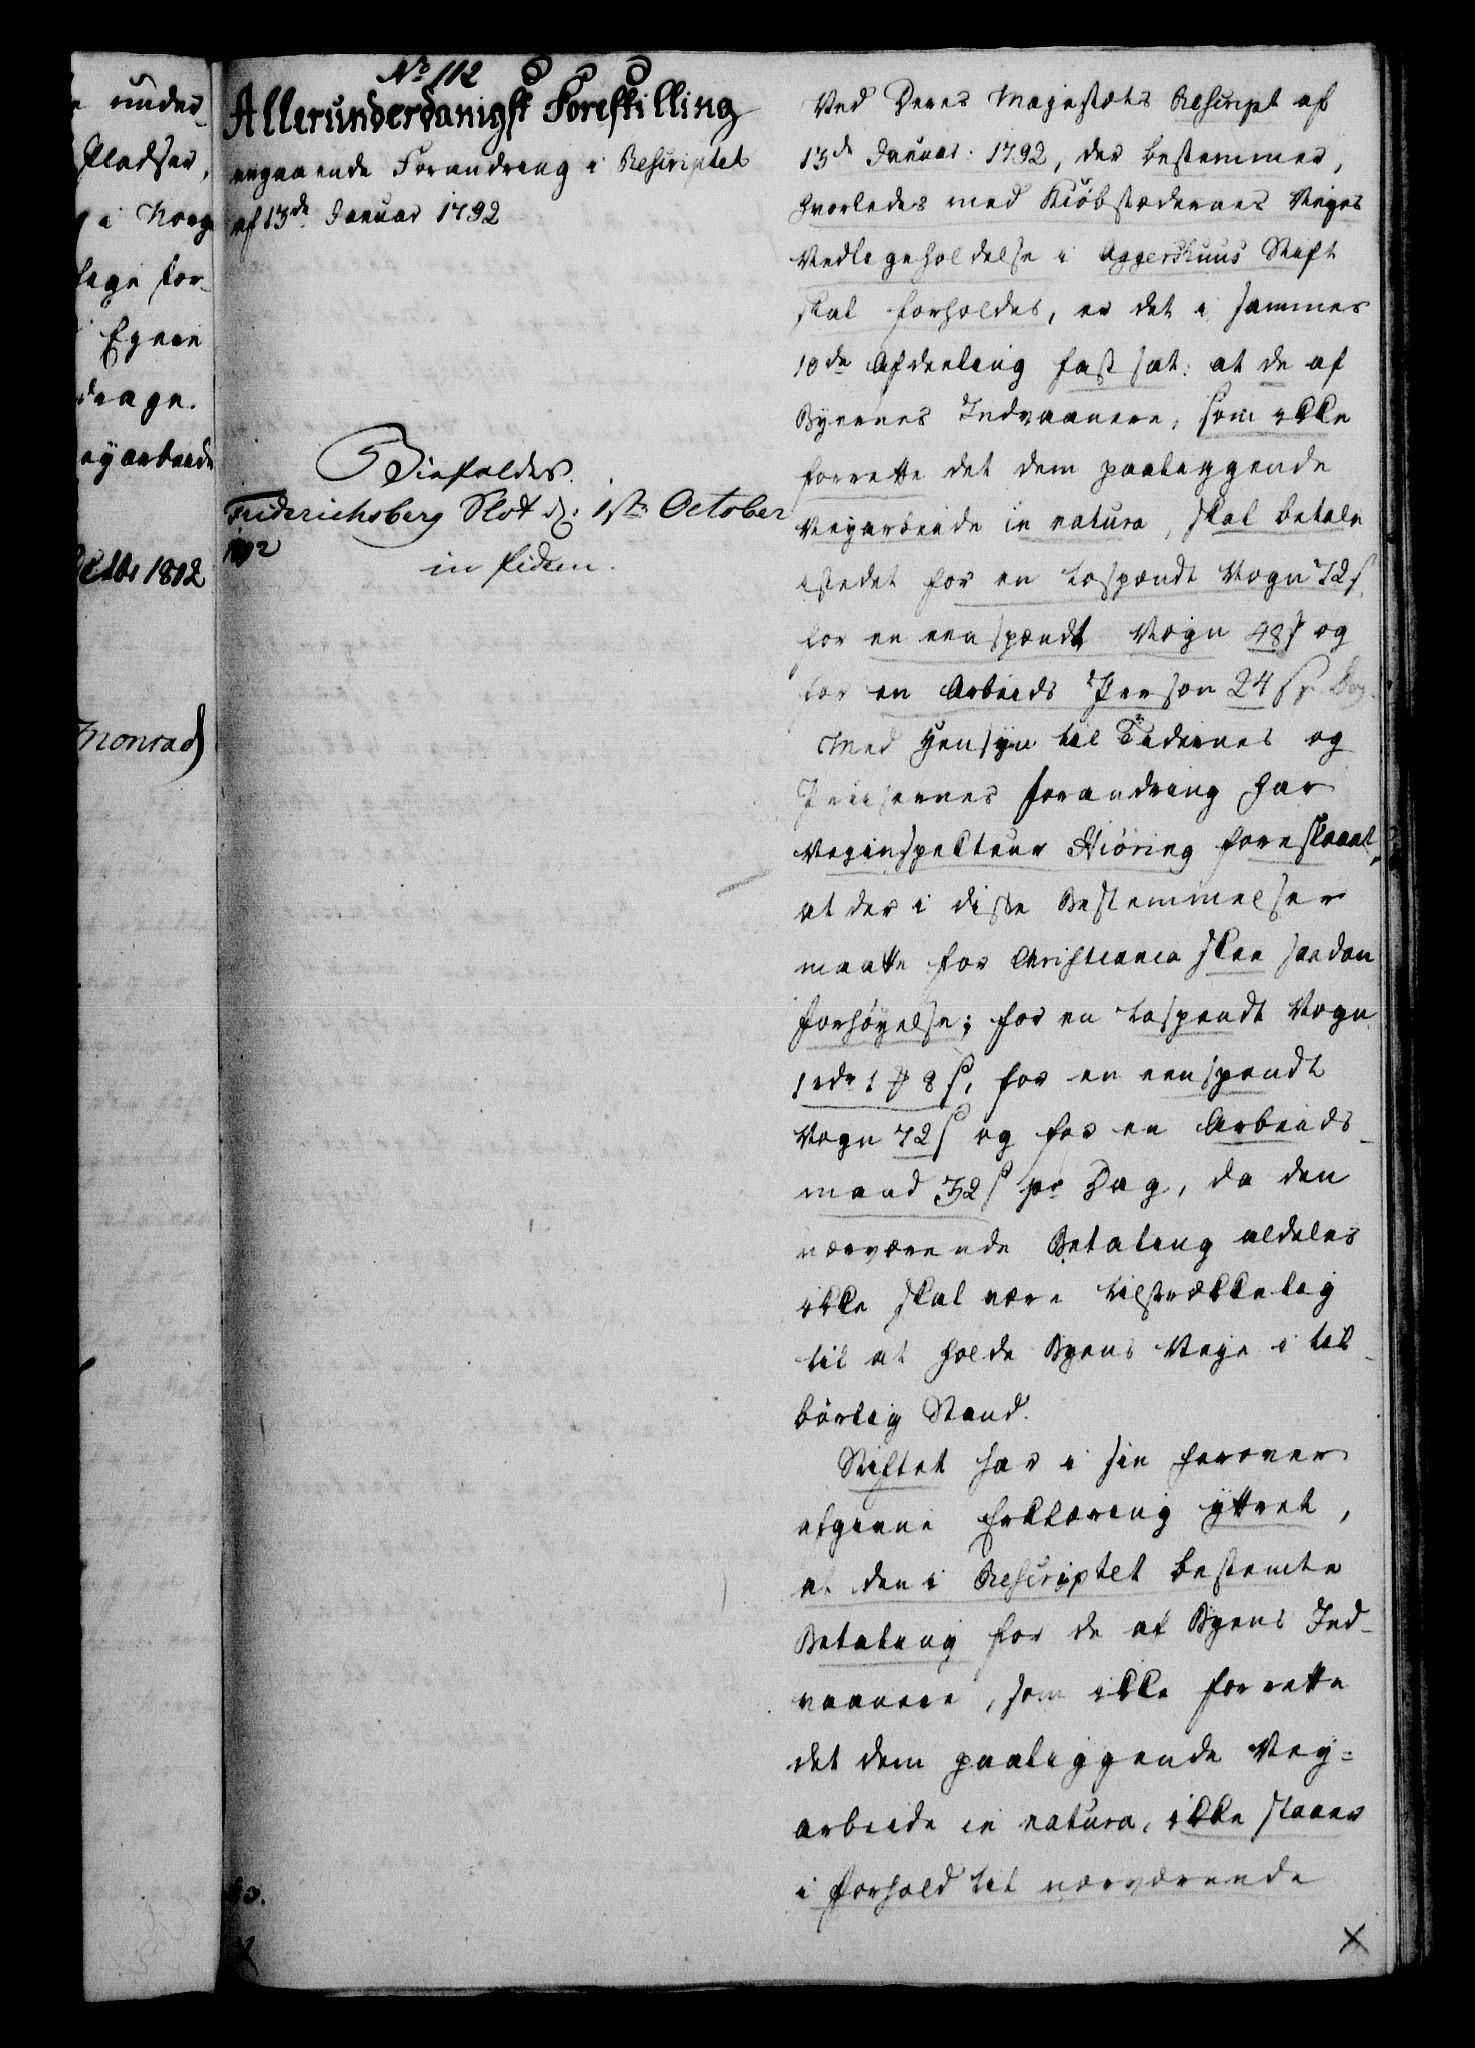 under-
Pladser,
i Norge
lige for-
Egnen
drage.
eyarbeide
Octbr 1802
Monrad
No 112
Allerunderdanigst Forestilling
angaaende Forandring i Rescriptet
af 13de Januar 1792
Bifaldes.
Friderichsberg Slot d: 1ste October
1802
in fidem.
Ved Deres Majestæts Rescript af
13de Januar: 1792, der bestemmer,
hvorledes med Kiöbstædernes Veyes
Vedligeholdelse i Aggershuus Stift
skal forholdes, er det i sammes
10de Afdeeling fastsat: at de af
Byernes Indvaanere, som ikke
forrette det dem paaliggende
Veyarbeide in natura, skal betale
istedet for en tospændt Vogn 72 s,
for en eenspændt Vogn 48 s og
for en Arbeids Person 24 s pr Dag.
Med Hensyn til Tidernes og
Priisernes forandring har
Veginspekteur Hiöring foreslaaet,
at der i disse Bestemmelser
maatte for Christiania skee saadan
forhöyelse; for en tospændt Vogn
1 rdr 1 ₰ 8 s, for en eenspændt
Vogn 72 s og for en Arbeids-
mand 32 s pr Dag, da den
nærværende Betaling aldeles
ikke skal være tilstrækkelig
til at holde Byens Veye i til-
börlig Stand.
Stiftet har i sin herover
afgivne Erklæring yttret,
at den i Rescriptet bestemte
Betaling for de af Byens Ind-
vaanere, som ikke forrette
det dem paaliggende Vey-
arbeide in natura, ikke staaer
i forhold til nærværende